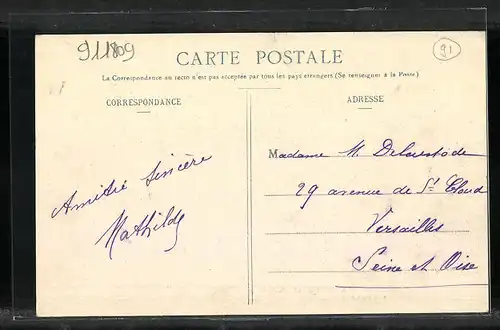 911809
91
CARTE POSTALE
La Correspondance au recto n'est pas acceptée par tous les pays étrangers (Se renseigner à la Poste.)
CORRESPONDANCE
ADRESSE
Amitié sincère
Mathilde
Madame M.
29 avenue de St Cloud
Versailles
Seine et Oise